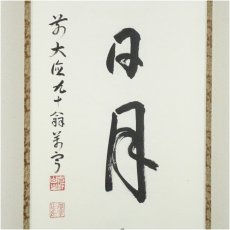 日月
前大徳九十翁